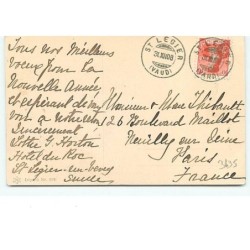 Tous nos meilleurs
voeux pour la
Nouvelle Année
et espérant de
vont a
Sincèrement
Lottie G. Horton
Hotel du Roc
St Légier sur Vevey
Suisse
ST LÉGIER
(VAUD)
31.XII.08
Monsieur & Mme Thibault
26 Boulevard Maillot
Neuilly sur Seine
Paris
France